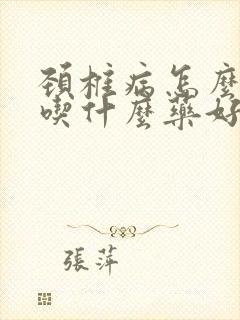 頚椎病怎麼
喫什麼藥好
張萍